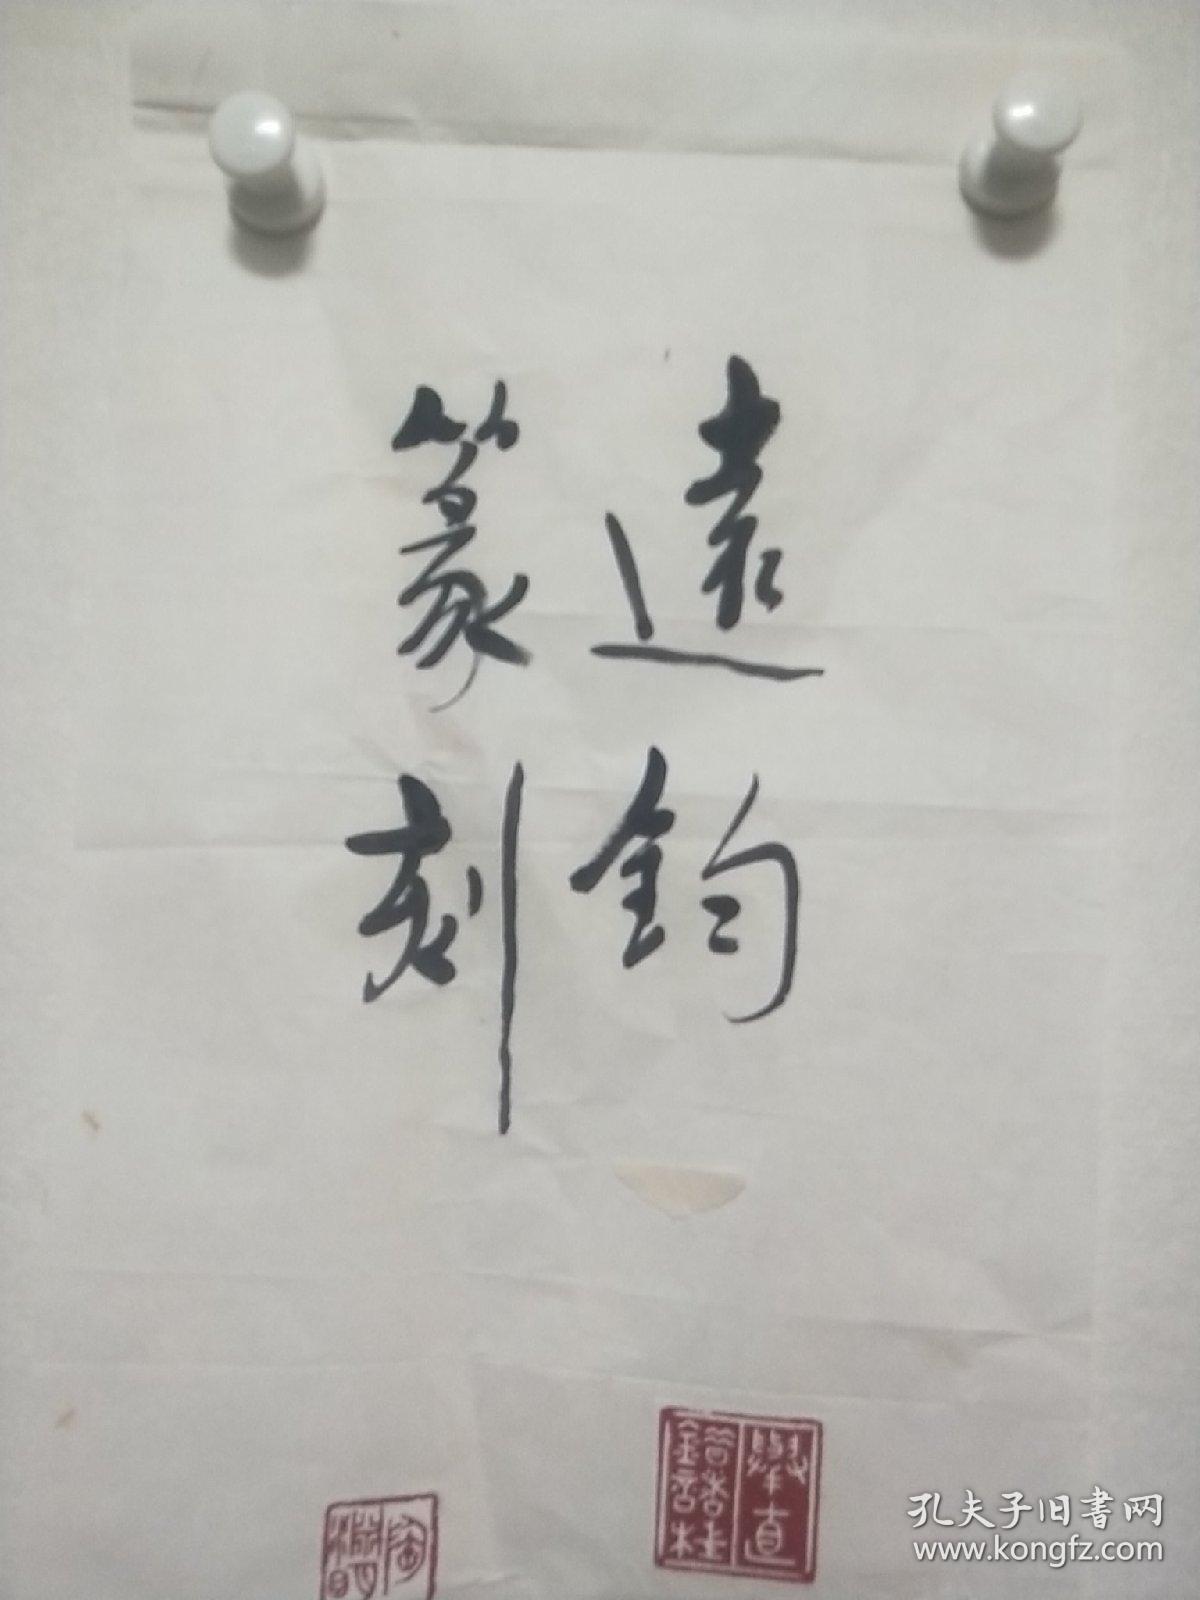 遠鈞
篆刻
孔夫子旧書网
www.kongfz.com